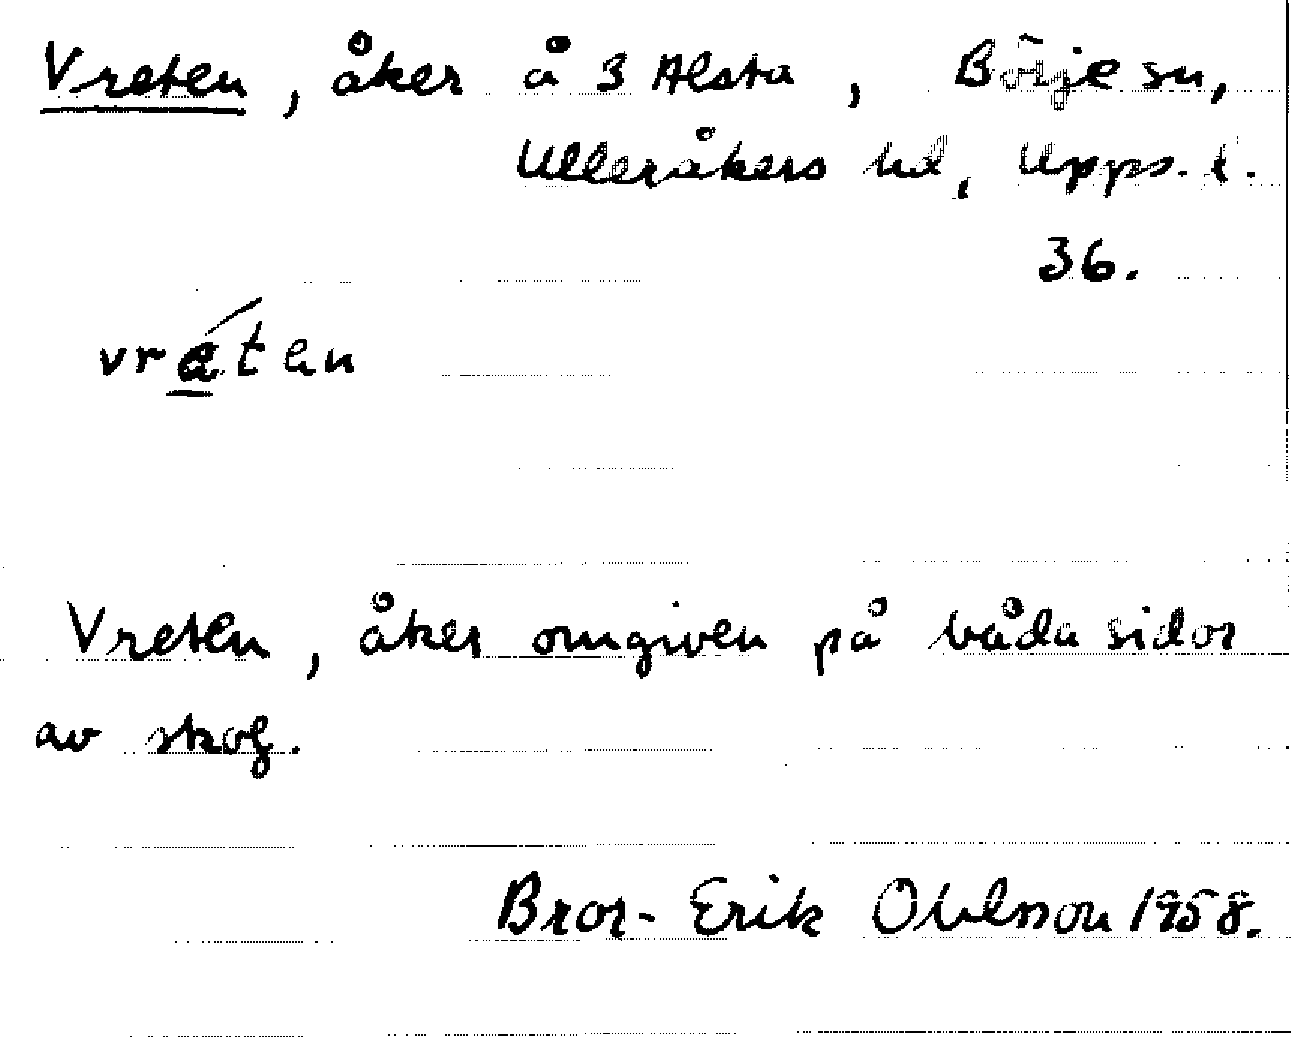 Vreten, åker å 3 Alsta, Börje sn,
Ulleråkers hd, Upps. l.
36.
vréten
Vreten, åker omgiven på båda sidor
av skog.
Bror-Erik Ohlsson 1958.